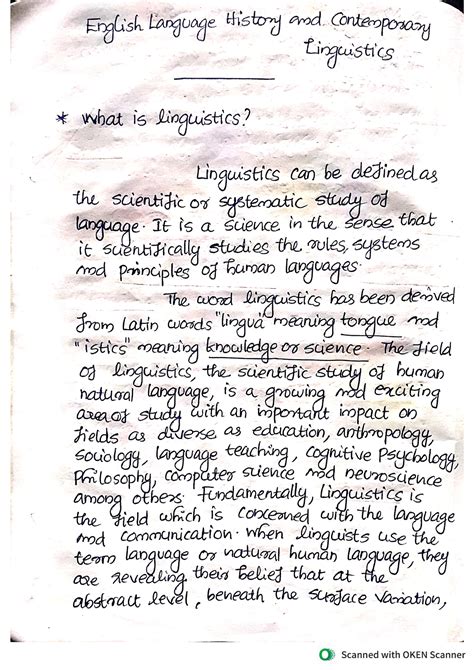 English Language History and Contemporary
Linguistics
* What is linguistics?
Linguistics can be defined as
the scientific or systematic study of
language. It is a science in the sense that
it scientifically studies the rules, systems
and principles of human languages.
The word linguistics has been derived
from Latin words "lingua" meaning tongue and
"istics" meaning knowledge or science. The field
of linguistics, the scientific study of human
natural language, is a growing and exciting
area of study with an important impact on
fields as diverse as education, anthropology,
sociology, language teaching, cognitive Psychology,
Philosophy, computer science and neuroscience
among others. Fundamentally, Linguistics is
the field which is concerned with the language
and communication. When linguists use the
term language or natural human language, they
are revealing their belief that at the
abstract level, beneath the surface variation,
Scanned with OKEN Scanner